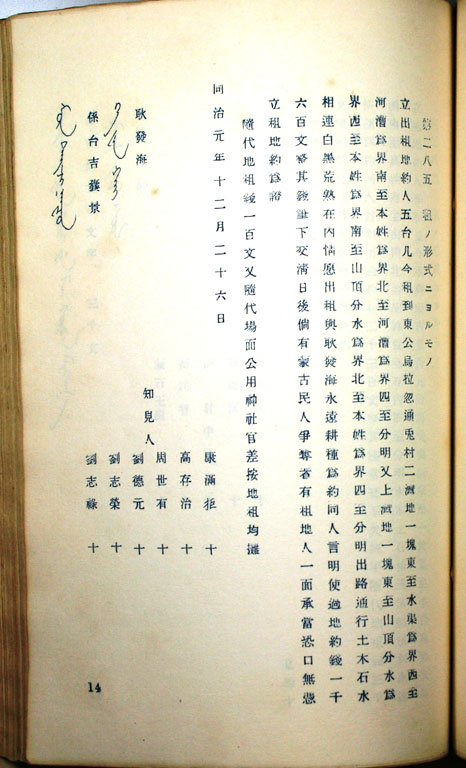 第二八五　租ノ形式ニヨルモノ
立出租地約人五台几今租到東公烏拉忽通兎村二渡地一塊東至水渠爲界西至
河漕爲界南至本姓爲界北至河漕爲界四至分明又上渡地一塊東至山頂分水爲
界西至本姓爲界南至山頂分水爲界北至本姓爲界四至分明出路通行土木石水
相連白黑荒熟在內情愿出租與耿發海永遠耕種爲約同人言明使過地約錢一千
六百文整其錢筆下交清日後倘有蒙古民人爭奪者有租地人一面承當恐口無憑
立租地約爲證
隨代地租錢一百文又隨代場面公用神社官差按地租均攤
同治元年十二月二十六日
知見人
康滿拒　十
高存治　十
周世有　十
劉德元　十
劉志榮　十
劉志祿　十
耿發海
係台吉養景
14